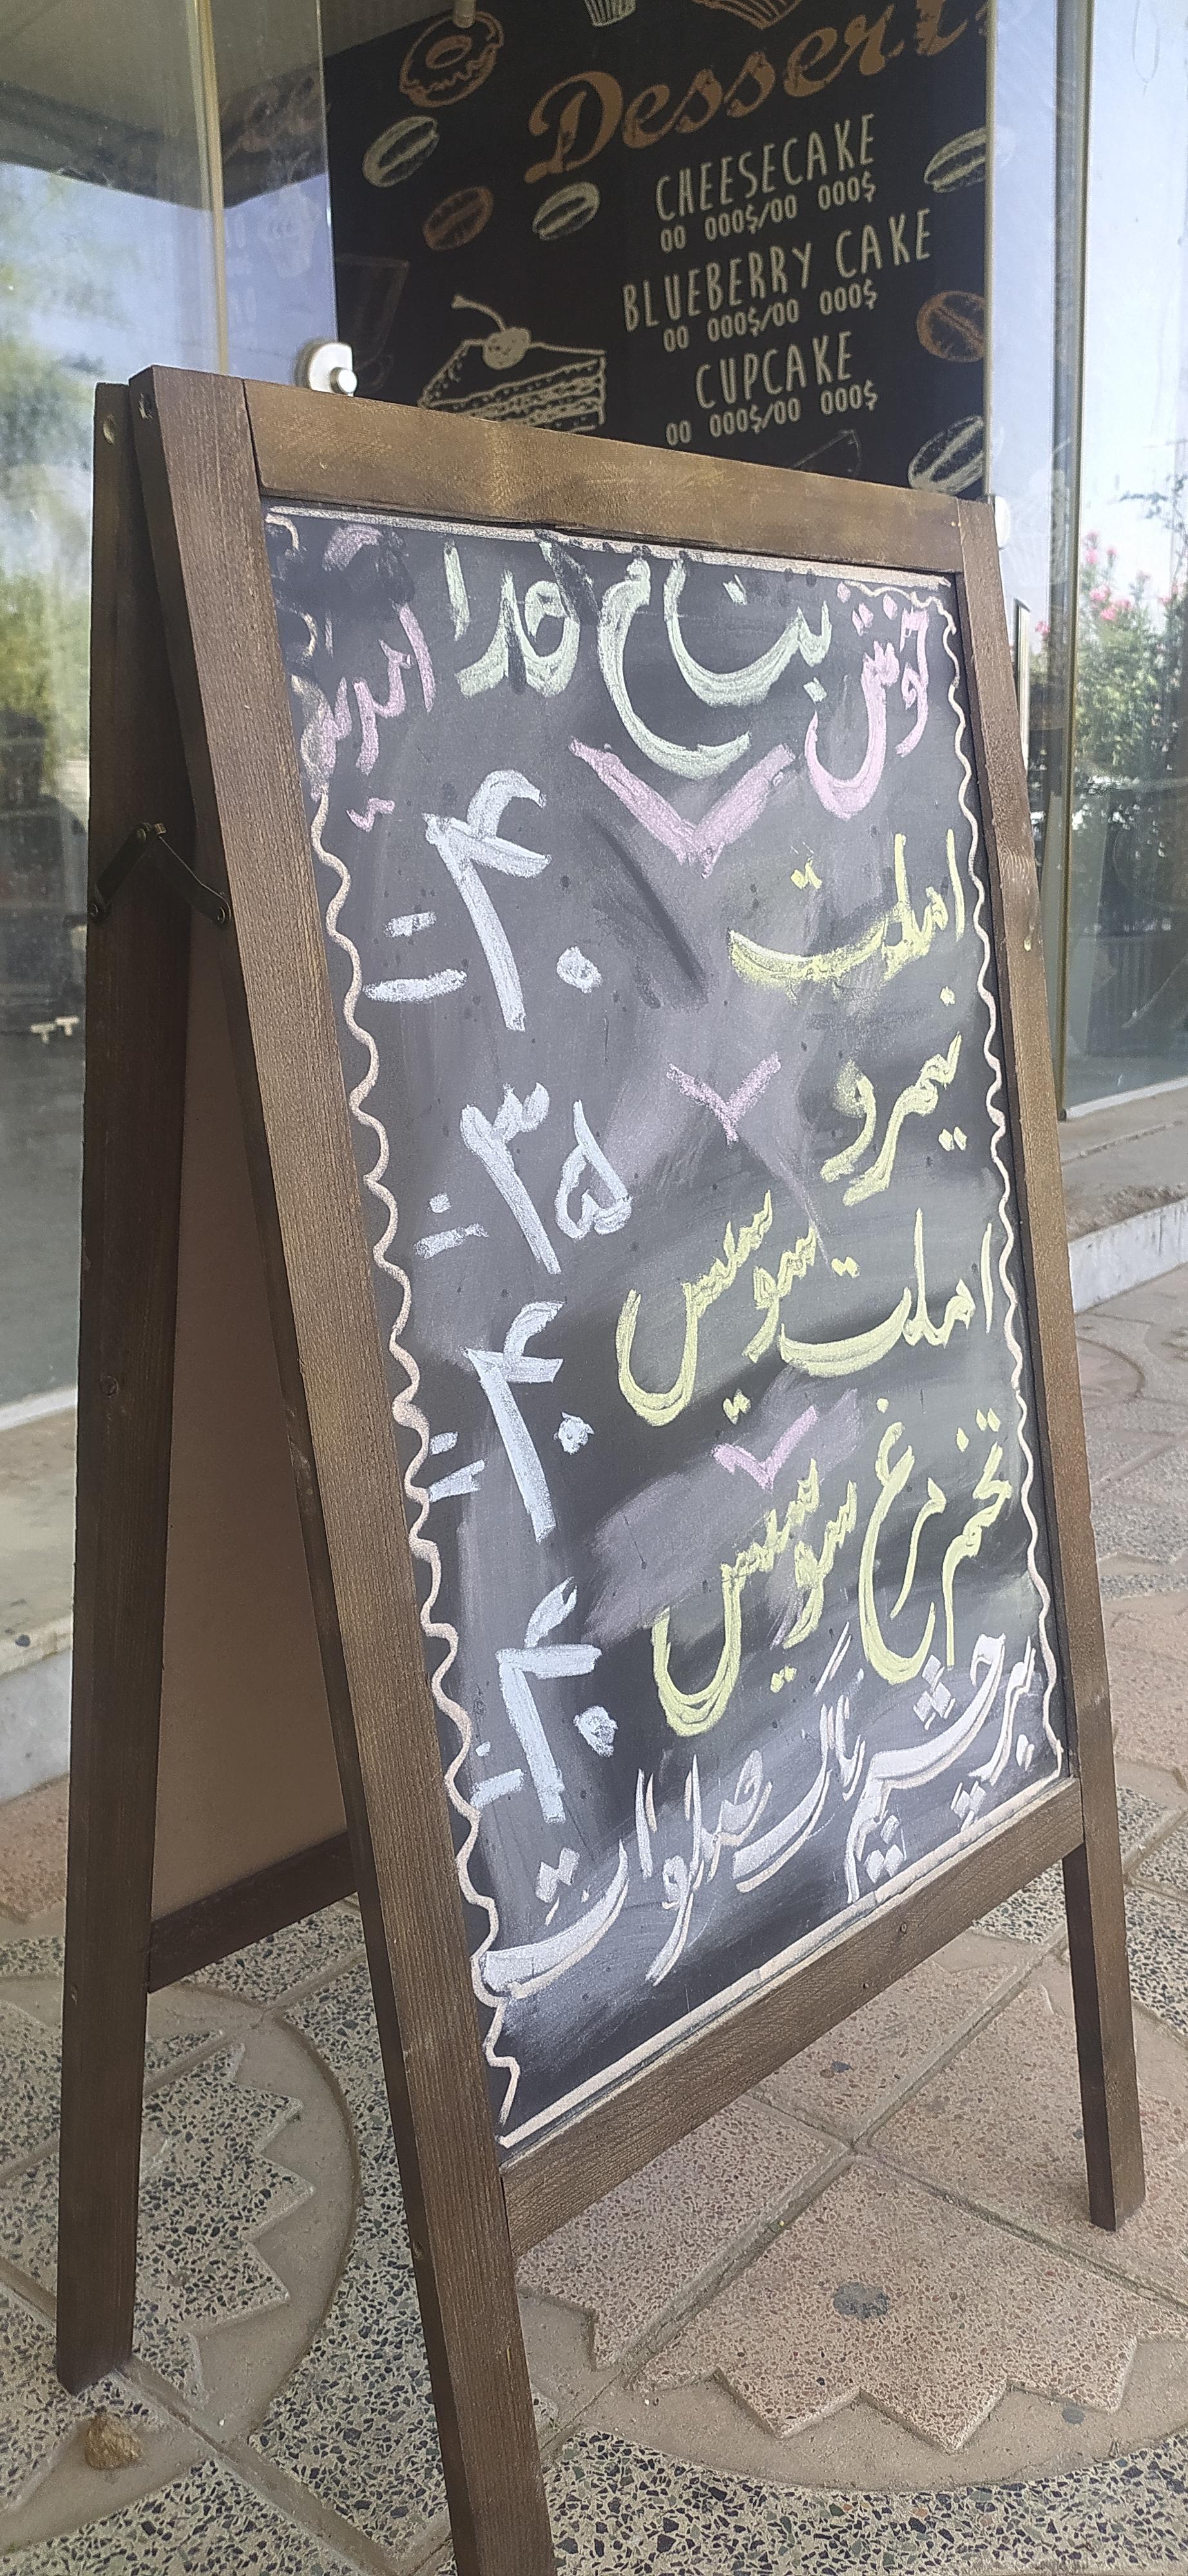 Dessert
CHEESECAKE
00 000$/00 000$
BLUEBERRY CAKE
00 000$/00 000$
CUPCAKE
00 000$/00 000$
خوش بنام خدا امدید
املت ۴۰
نیمرو ۳۵
املت سوسیس ۴۰
تخم مرغ سوسیس ۴۰
بر چشم پاک صلوات